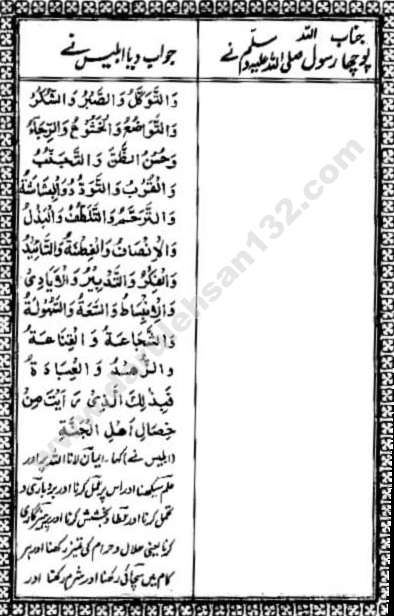 جناب اللہ
پوچھا رسول صلی اللہ علیہ وسلم نے
جواب دیا ابلیس نے
وَالتَّوَكُّلُ وَالصَّبْرُ وَالشُّكْرُ
وَالتَّوَاضُعُ وَالْخُشُوْعُ وَالرِّجَاءُ
وَحُسْنُ الظَّنِّ وَالتَّحَبُّبُ
وَالْقُرْبُ وَالتَّوَدُّدُ وَالْبَشَاشَةُ
وَالتَّرَحُّمُ وَالتَّلَطُّفُ وَالْبَذْلُ
وَالْاِنْصَافُ وَالْفِطْنَةُ
وَالْفِكْرُ وَالتَّدْبِيْرُ
وَالْاِنْبِسَاطُ وَالسَّعَةُ وَالسُّهُوْلَةُ
وَالشَّجَاعَةُ وَالْقَنَاعَةُ
وَالزُّهْدُ وَالْعِبَادَةُ
فَبِذٰلِكَ الَّذِىْ رَاَيْتَ مِنْ
خِصَالِ اَهْلِ الْجَنَّةِ
(ابلیس نے) کہا۔ ایمان لانا اللہ پر اور
علم سیکھنا اور اس پر عمل کرنا اور بردباری و
تحمل کرنا اور عطا و بخشش کرنا اور پرہیزگاری
کرنا یعنی حلال و حرام کی تمیز رکھنا اور ہر
کام میں سچائی رکھنا اور شرم رکھنا اور
www.darulehsan132.com